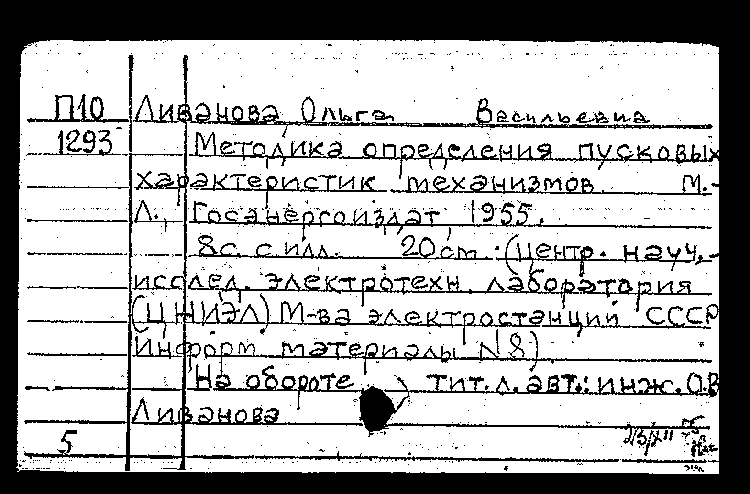 П10 Ливанова, Ольга Васильевна
1293 Методика определения пусковых
характеристик механизмов. М.-
Л., Госэнергоиздат, 1955.
8с. с илл. 20cm. (Центр. науч.-
исслед. электротехн. лаборатория
(ЦНИЭЛ) М-ва электростанций СССР
Информ. материалы N8).
На обороте тит. л. авт.: инж. О.В
Ливанова
5